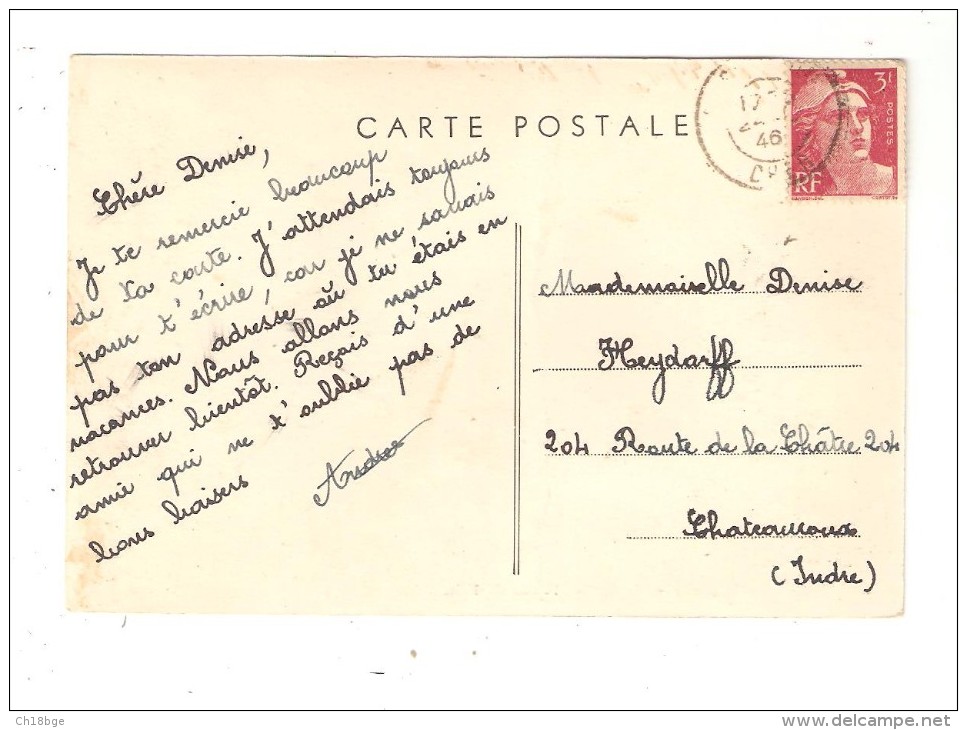 CARTE POSTALE
Chère Denise,
Je te remercie beaucoup
de ta carte. J'attendais toujours
pour t'écrire, car je ne savais
pas ton adresse où tu étais en
vacances. Nous allons nous
retrouver bientôt. Reçois d'une
amie qui ne t'oublie pas de
bons baisers
17
46
3F
POSTES
RF
Mademoiselle Denise
Heydorff
204 Route de la Châtre 204
Chateauroux
(Indre)
Ch18bge
www.delcampe.net